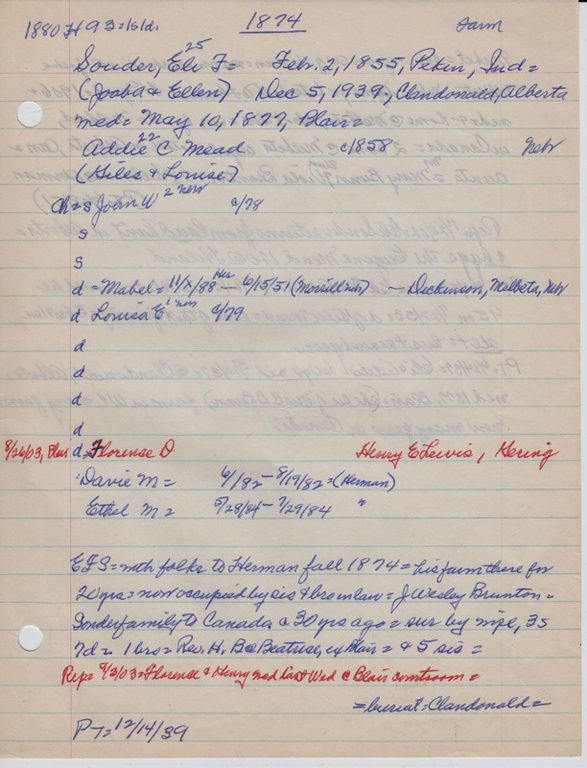 1880 H 93 = 1s1d. 1874 Farm
25
Souder, Eli F = Feb. 2, 1855, Pekin, Ind =
(Joab & Ellen) Dec 5, 1939, Clandonald, Alberta
med = May 10, 1877, Blair =
22
Addie C Mead c1858 Nebr
(Hiles & Louise)
Ch = s John W 2 nebr c/78
s
s
Her
d = Mabel = 11/X/88 - 6/15/51 (Morrill nebr) - Dickinson, Melbeta, Nebr
d Louisa E 1 nebr c/79
d
d
d
d
8/26/03, Blair d = Florense O Henry E Lewis, Gering
Davie M = 6/82 - 8/19/82 = (Herman)
Ethel M = 5/28/84 - 7/29/84 "
EFS = with folks to Herman fall 1874 = his farm there for
20 yrs = now occupied by sis & bro in law = J Wesley Brunton =
Souder family to Canada c 30 yrs ago = sur by wife, 3s
7d = 1 bro = Rev. H. B @ Beatrise, ex Blair = & 5 sis =
Rep = 9/3/03 = Florence & Henry med last Wed @ Blair courtroom =
= burial = Clandonald =
P-T = 12/14/39